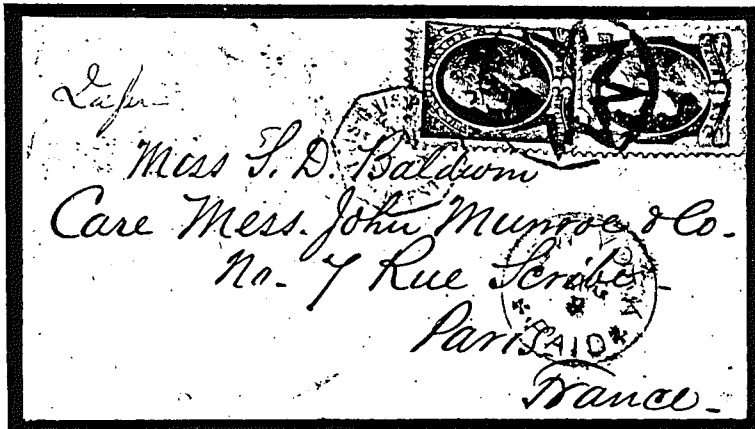 Miss S. D. Baldwin
Care Mess. John Munroe & Co.
No. 7 Rue Scribe
Paris
France.
PAID